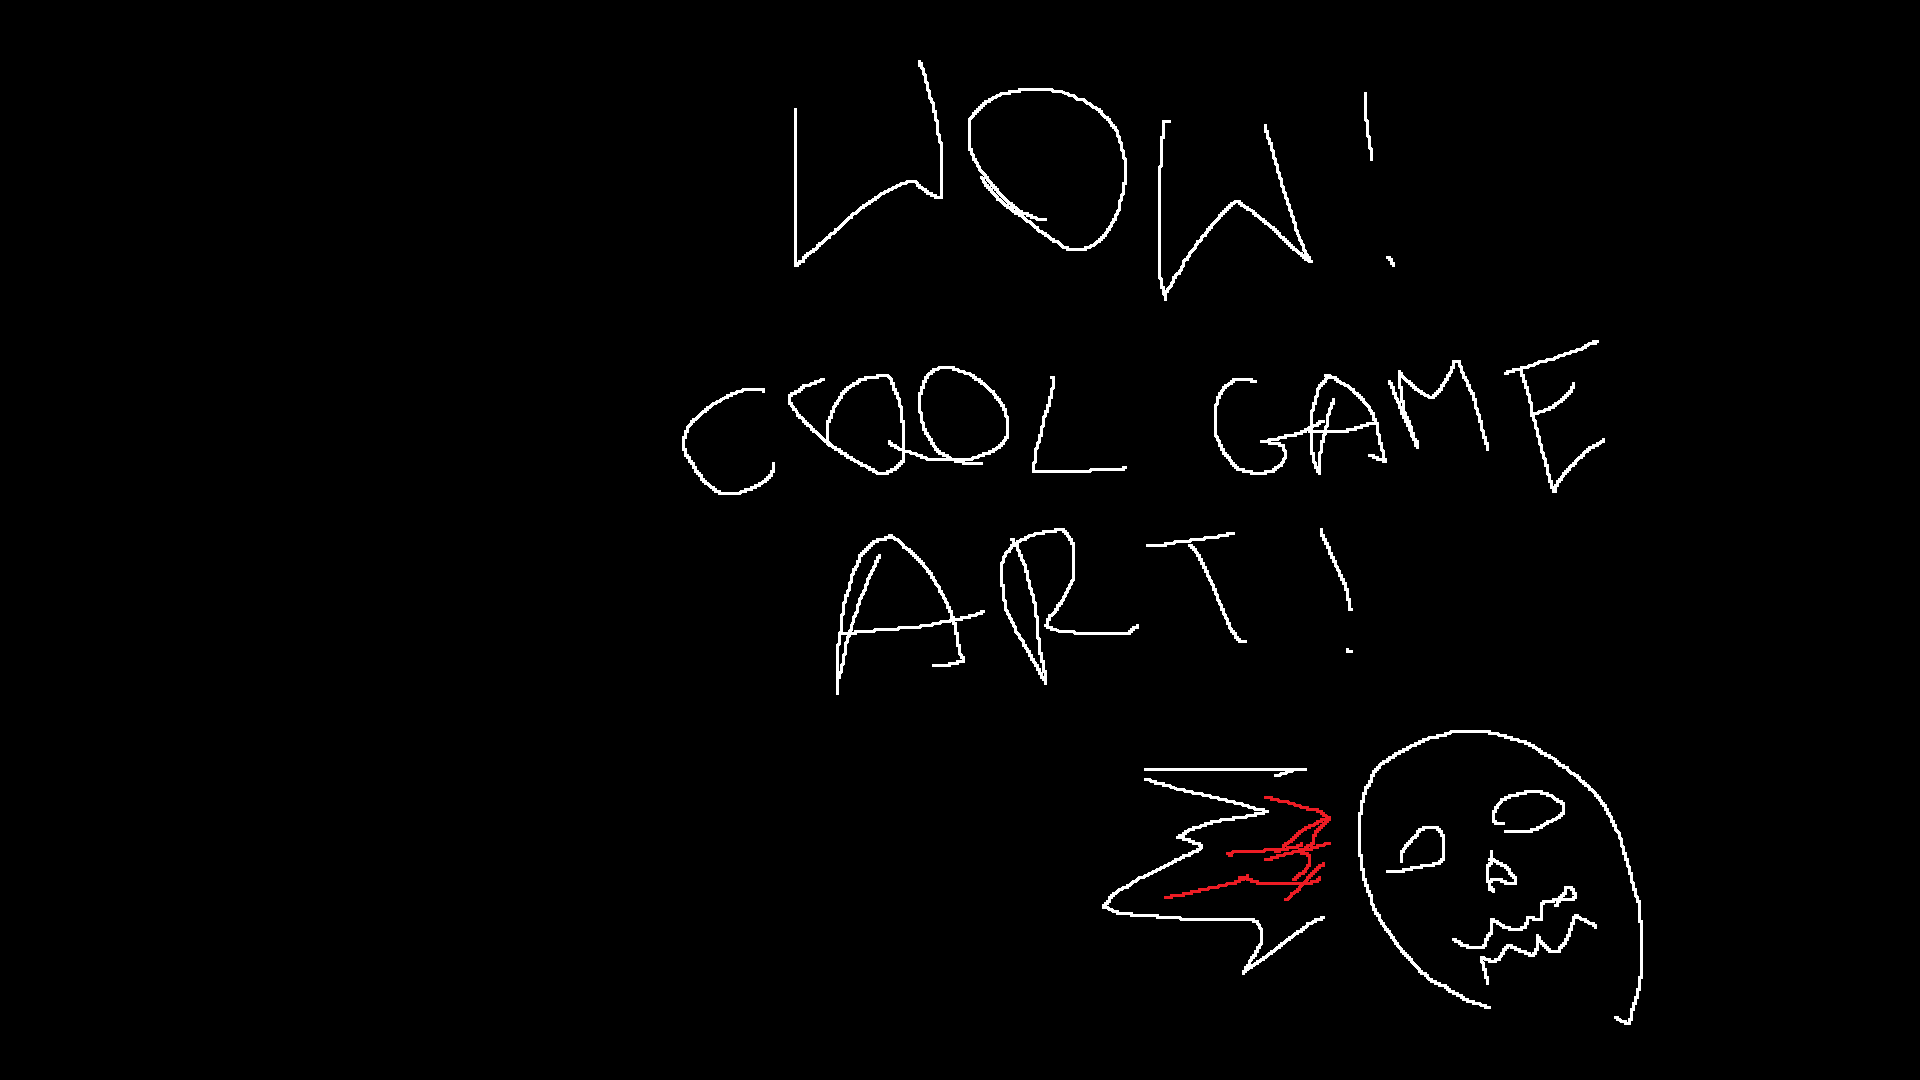 WOW!
COOL GAME
ART!